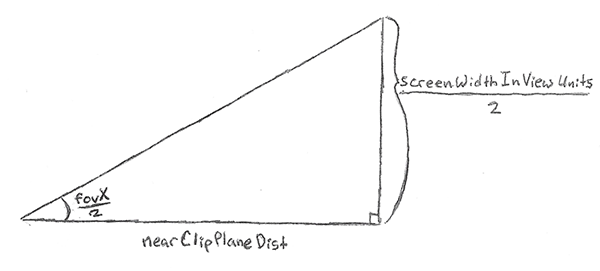 screenWidthInViewUnits
2
fovX
2
nearClipPlaneDist